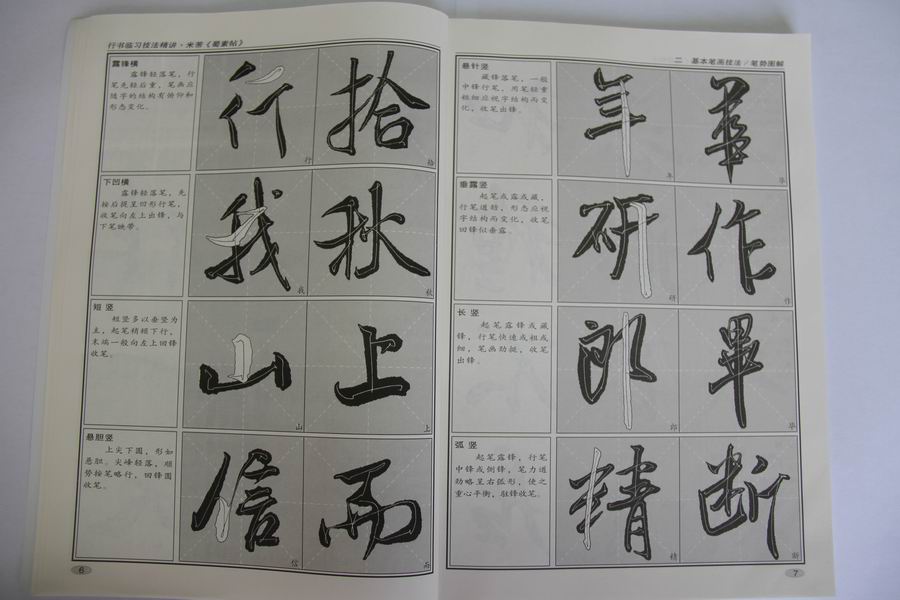 行书临习技法精讲·米芾《蜀素帖》
露锋横
露锋轻落笔，行
笔先轻后重，笔画应
随字的结构有俯仰和
形态变化。
行
拾
行
拾
下凹横
露锋轻落笔，先
按后提呈凹形行笔，
收笔向左上出锋，与
下笔映带。
我
秋
我
秋
短竖
短竖多以垂竖为
主，起笔稍顿下行，
末端一般向左上回锋
收笔。
山
上
山
上
悬胆竖
上尖下圆，形如
悬胆。尖锋轻落，顺
势按笔略行，回锋圆
收笔。
信
而
信
而
6
二 基本笔画技法/笔势图解
悬针竖
藏锋落笔，一般
中锋行笔，用笔轻重
粗细应视字结构而变
化，收笔出锋。
年
华
年
华
垂露竖
起笔或露或藏，
行笔遒劲，形态应视
字结构而变化，收笔
回锋似垂露。
研
作
研
作
长竖
起笔露锋或藏
锋，行笔快速或粗或
细，笔画劲挺，收笔
出锋。
郎
畢
郎
毕
弧竖
起笔露锋，行笔
中锋或侧锋，笔力遒
劲略呈右弧形，使之
重心平衡，驻锋收笔。
精
断
精
断
7